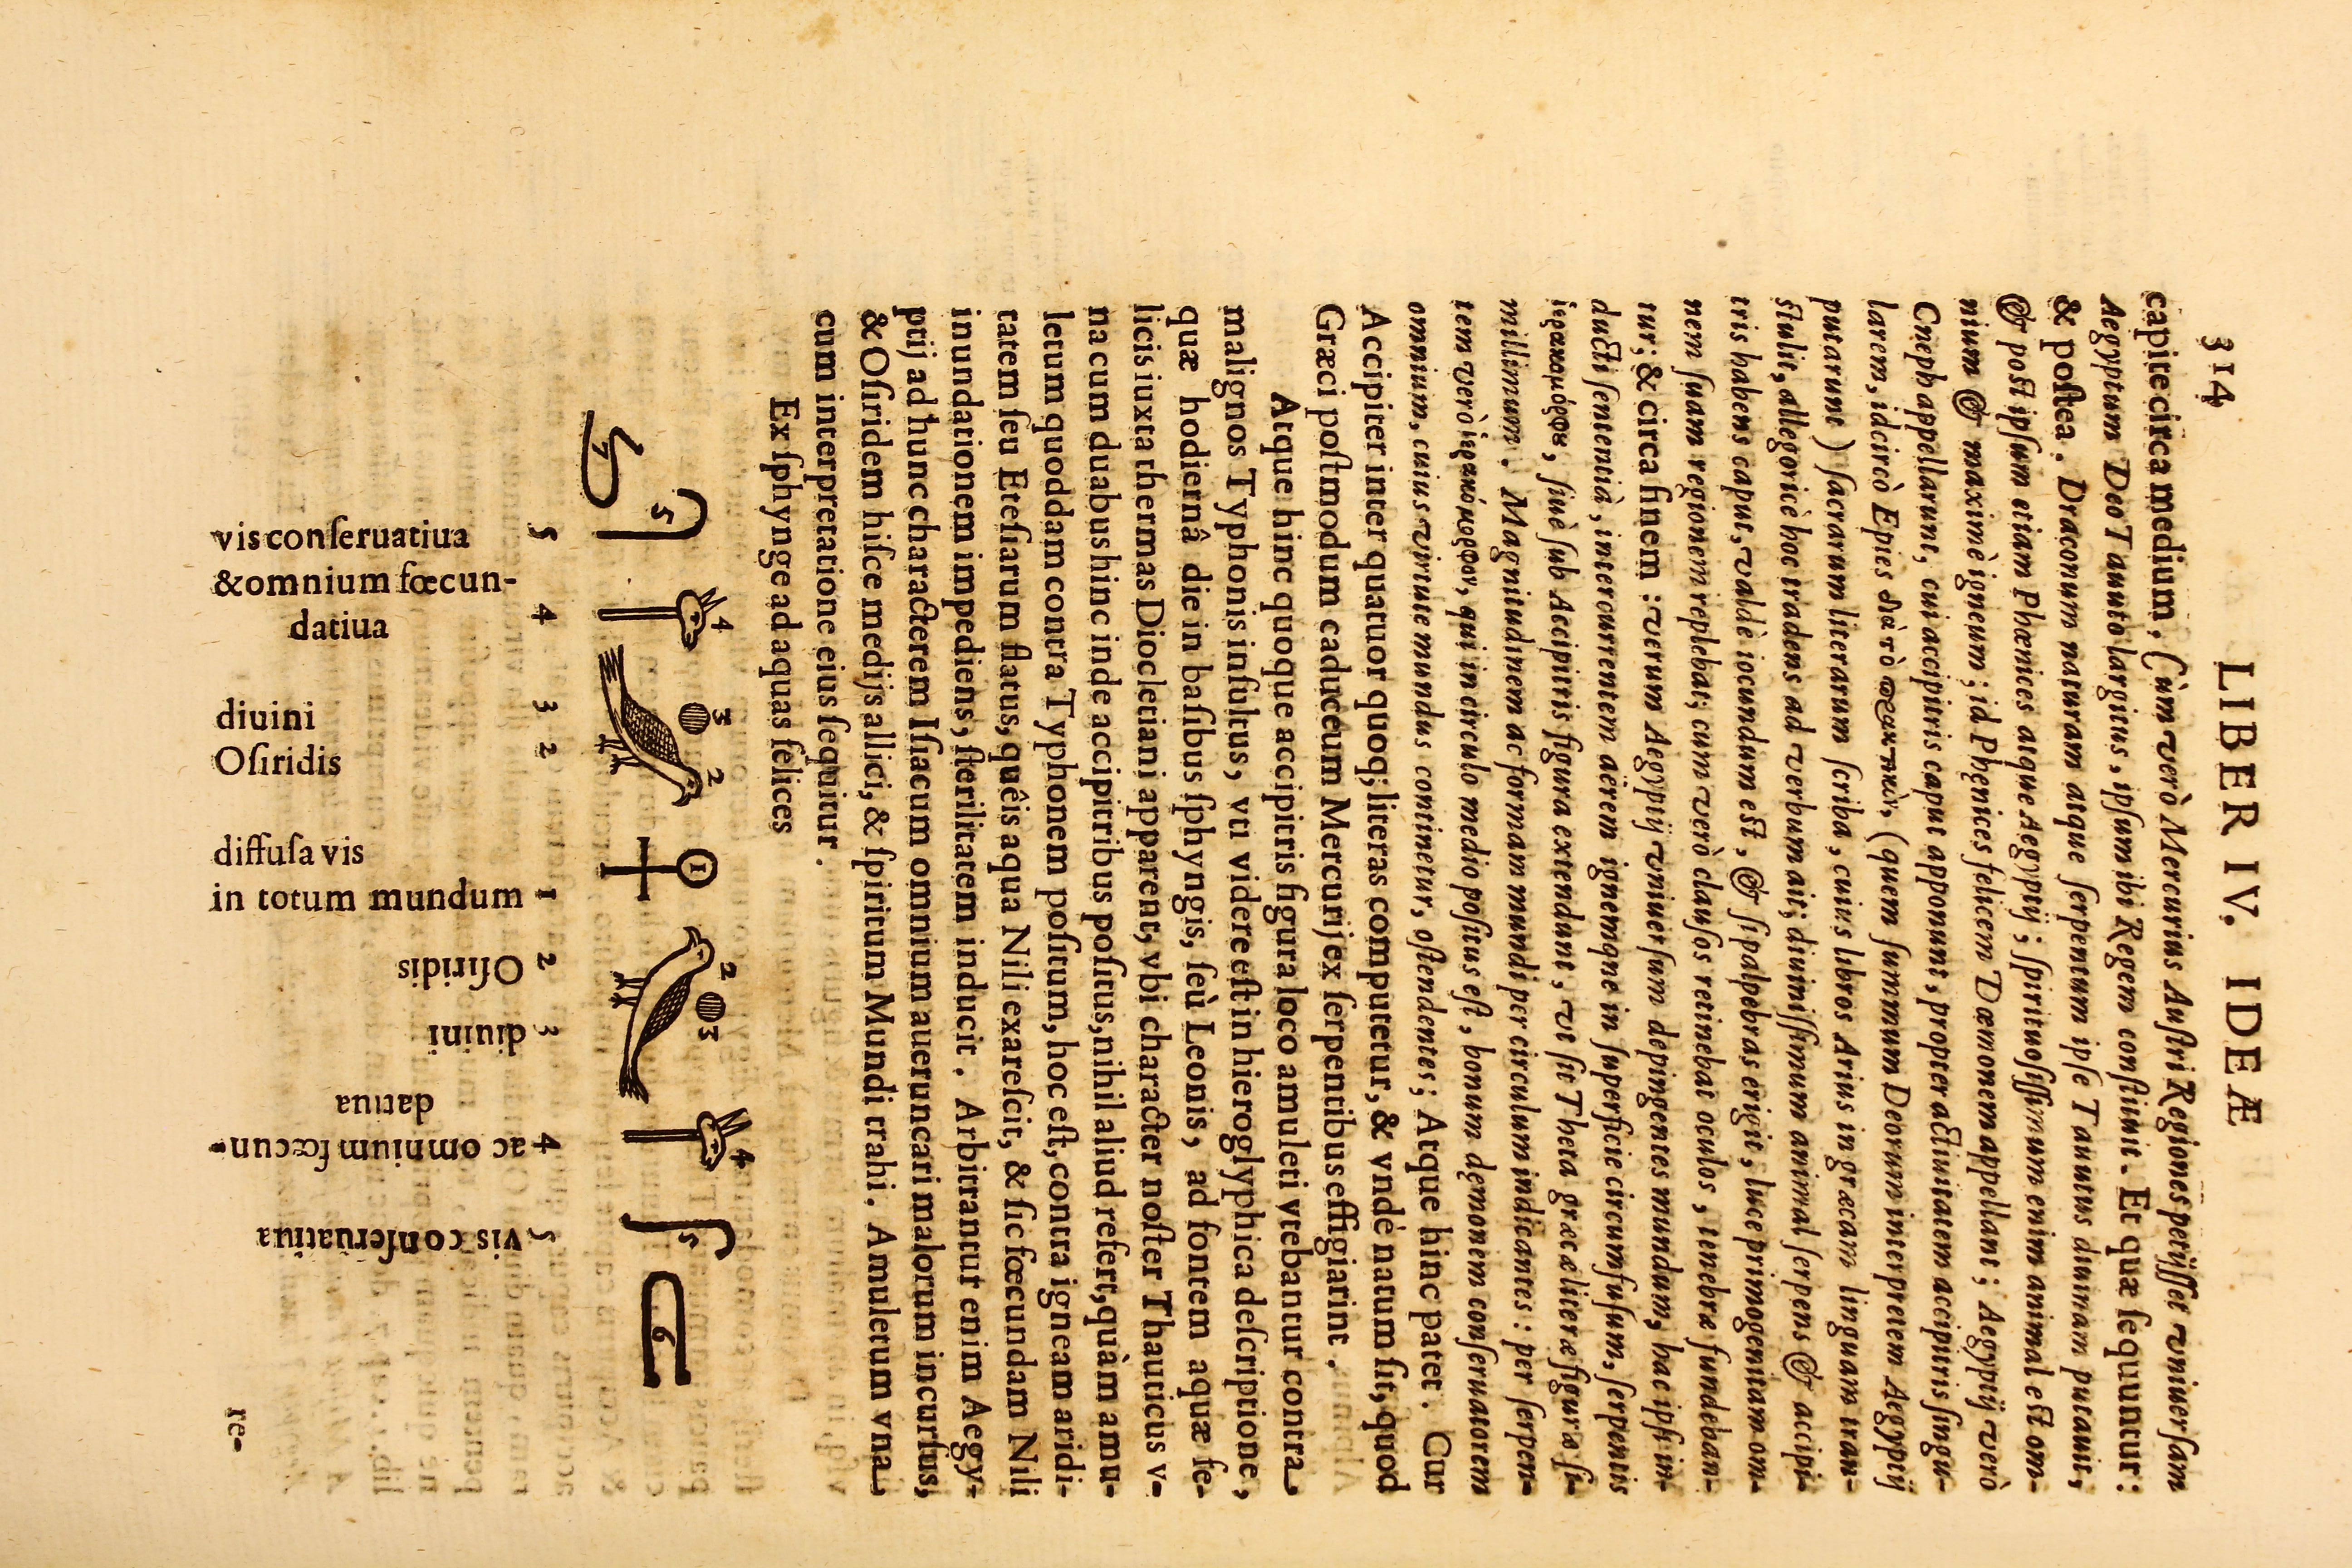 314 LIBER IV. IDEÆ
capite circa medium. Cùm verò Mercurius Austri Regiones petijsset vniuersam
Aegyptum Deo Tauuto largitus, ipsum ibi Regem constituit. Et quæ sequuntur:
& postea. Draconum naturam atque serpentum ipse Tauutus diuinam putauit,
& post ipsum etiam Phœnices atque Aegyptij; spirituosissimum enim animal est om-
nium & maximè igneum; id Phęnices felicem Dæmonem appellant; Aegyptij verò
Cneph appellarunt, cui accipitris caput apponunt, propter actiuitatem accipitris singu-
larem, idcircò Epies διὰ τὸ , (quem summum Deorum interpretem Aegyptij
putarunt) sacrarum literarum scriba, cuius libros Arius in græcam linguam tran-
stulit, allegoricè hoc tradens ad verbum ait; diuinissimum animal serpens & accipi-
tris habens caput, valdè iocundum est, & si palpebras erigit, luce primogenitam om-
nem suam regionem replebat; cum verò clausos retinebat oculos, tenebræ fundeban-
tur; & circa finem: verum Aegyptij vniuersum depingentes mundum, hac ipsi in-
ducti sententiâ, intercurrentem aërem ignemque in superficie circumfusum, serpentis
ἱερακομόρφου, siuè sub Accipitris figura extendunt, vt sit Theta græcæ literæ figuræ si-
millimum. Magnitudinem ac formam mundi per circulum indicantes: per serpen-
tem verò ἱερακόμορφον, qui in circulo medio positus est, bonum dęmonem conseruatorem
omnium, cuius virtute mundus continetur, ostendentes; Atque hinc patet. Cur
Accipiter inter quatuor quoq; literas computetur, & vndè natum sit, quod
Græci postmodum caduceum Mercurij ex serpentibus effigiarint.
Atque hinc quoque accipitris figura loco amuleti vtebantur contra
malignos Typhonis insultus, vti videre est in hieroglyphica descriptione,
quæ hodiernâ die in basibus sphyngis, seù Leonis, ad fontem aquæ fe-
licis iuxta thermas Diocletiani apparent, vbi character noster Thauticus v-
na cum duabus hinc inde accipitribus positus, nihil aliud refert, quàm amu-
letum quoddam contra Typhonem positum, hoc est, contra igneam aridi-
tatem seu Etesiarum flatus, quêis aqua Nili exarescit, & sic fœcundam Nili
inundationem impediens, sterilitatem inducit. Arbitrantur enim Aegy-
ptij ad hunc characterem Isiacum omnium aueruncari malorum incursus,
& Osiridem hisce medijs allici, & spiritum Mundi trahi. Amuletum vna
cum interpretatione eius sequitur.
Ex sphynge ad aquas felices
7 5 4 3 2 1 2 3 4 5 6
5 4 3 2 1 2 3 4 5
vis conseruatiua
& omnium fœcun-
datiua
diuini
Osiridis
diffusa vis
in totum mundum
Osiridis
diuini
datiua
ac omnium fœcun-
vis conseruatiua
re-